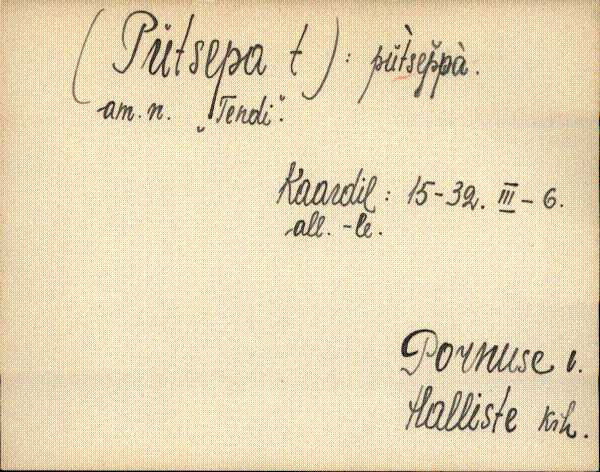 (Pütsepa t): pǜtsep̆pà.
am. n. „Tendi".
Kaardil: 15-32. III - 6.
all. -le.
Pornuse v.
Halliste khk.